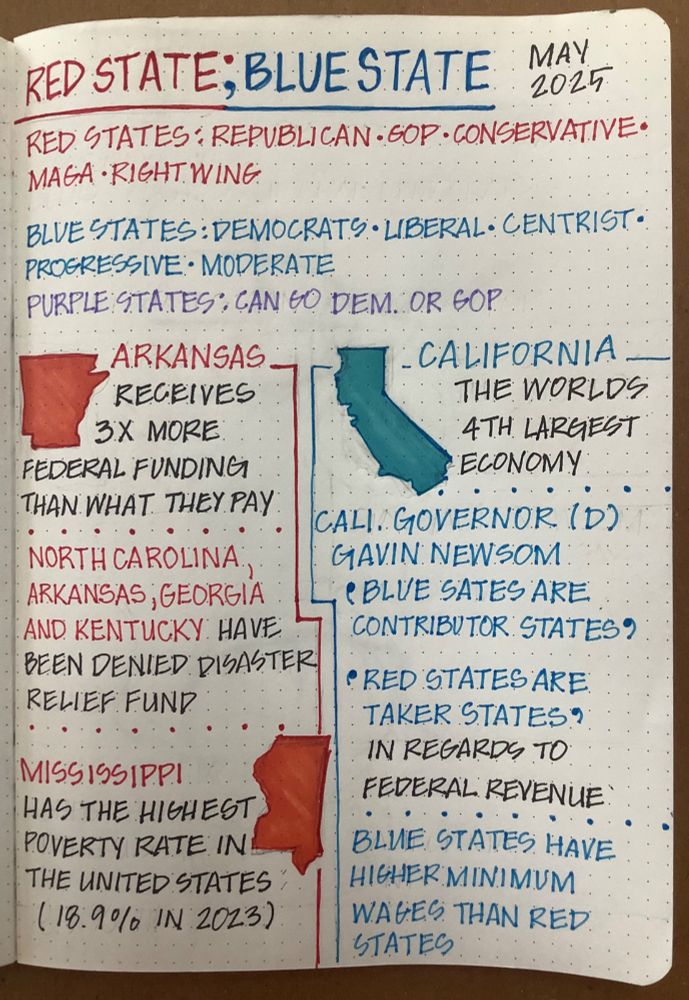 RED STATE; BLUE STATE
MAY
2025
RED STATES: REPUBLICAN • GOP • CONSERVATIVE •
MAGA • RIGHT WING
BLUE STATES: DEMOCRATS • LIBERAL • CENTRIST •
PROGRESSIVE • MODERATE
PURPLE STATES: CAN GO DEM. OR GOP
ARKANSAS
RECEIVES
3X MORE
FEDERAL FUNDING
THAN WHAT THEY PAY
NORTH CAROLINA,
ARKANSAS, GEORGIA
AND KENTUCKY HAVE
BEEN DENIED DISASTER
RELIEF FUND
MISSISSIPPI
HAS THE HIGHEST
POVERTY RATE IN
THE UNITED STATES
(18.9% IN 2023)
CALIFORNIA
THE WORLDS
4TH LARGEST
ECONOMY
CALI. GOVERNOR (D)
GAVIN NEWSOM
"BLUE SATES ARE
CONTRIBUTOR STATES"
"RED STATES ARE
TAKER STATES"
IN REGARDS TO
FEDERAL REVENUE
BLUE STATES HAVE
HIGHER MINIMUM
WAGES THAN RED
STATES